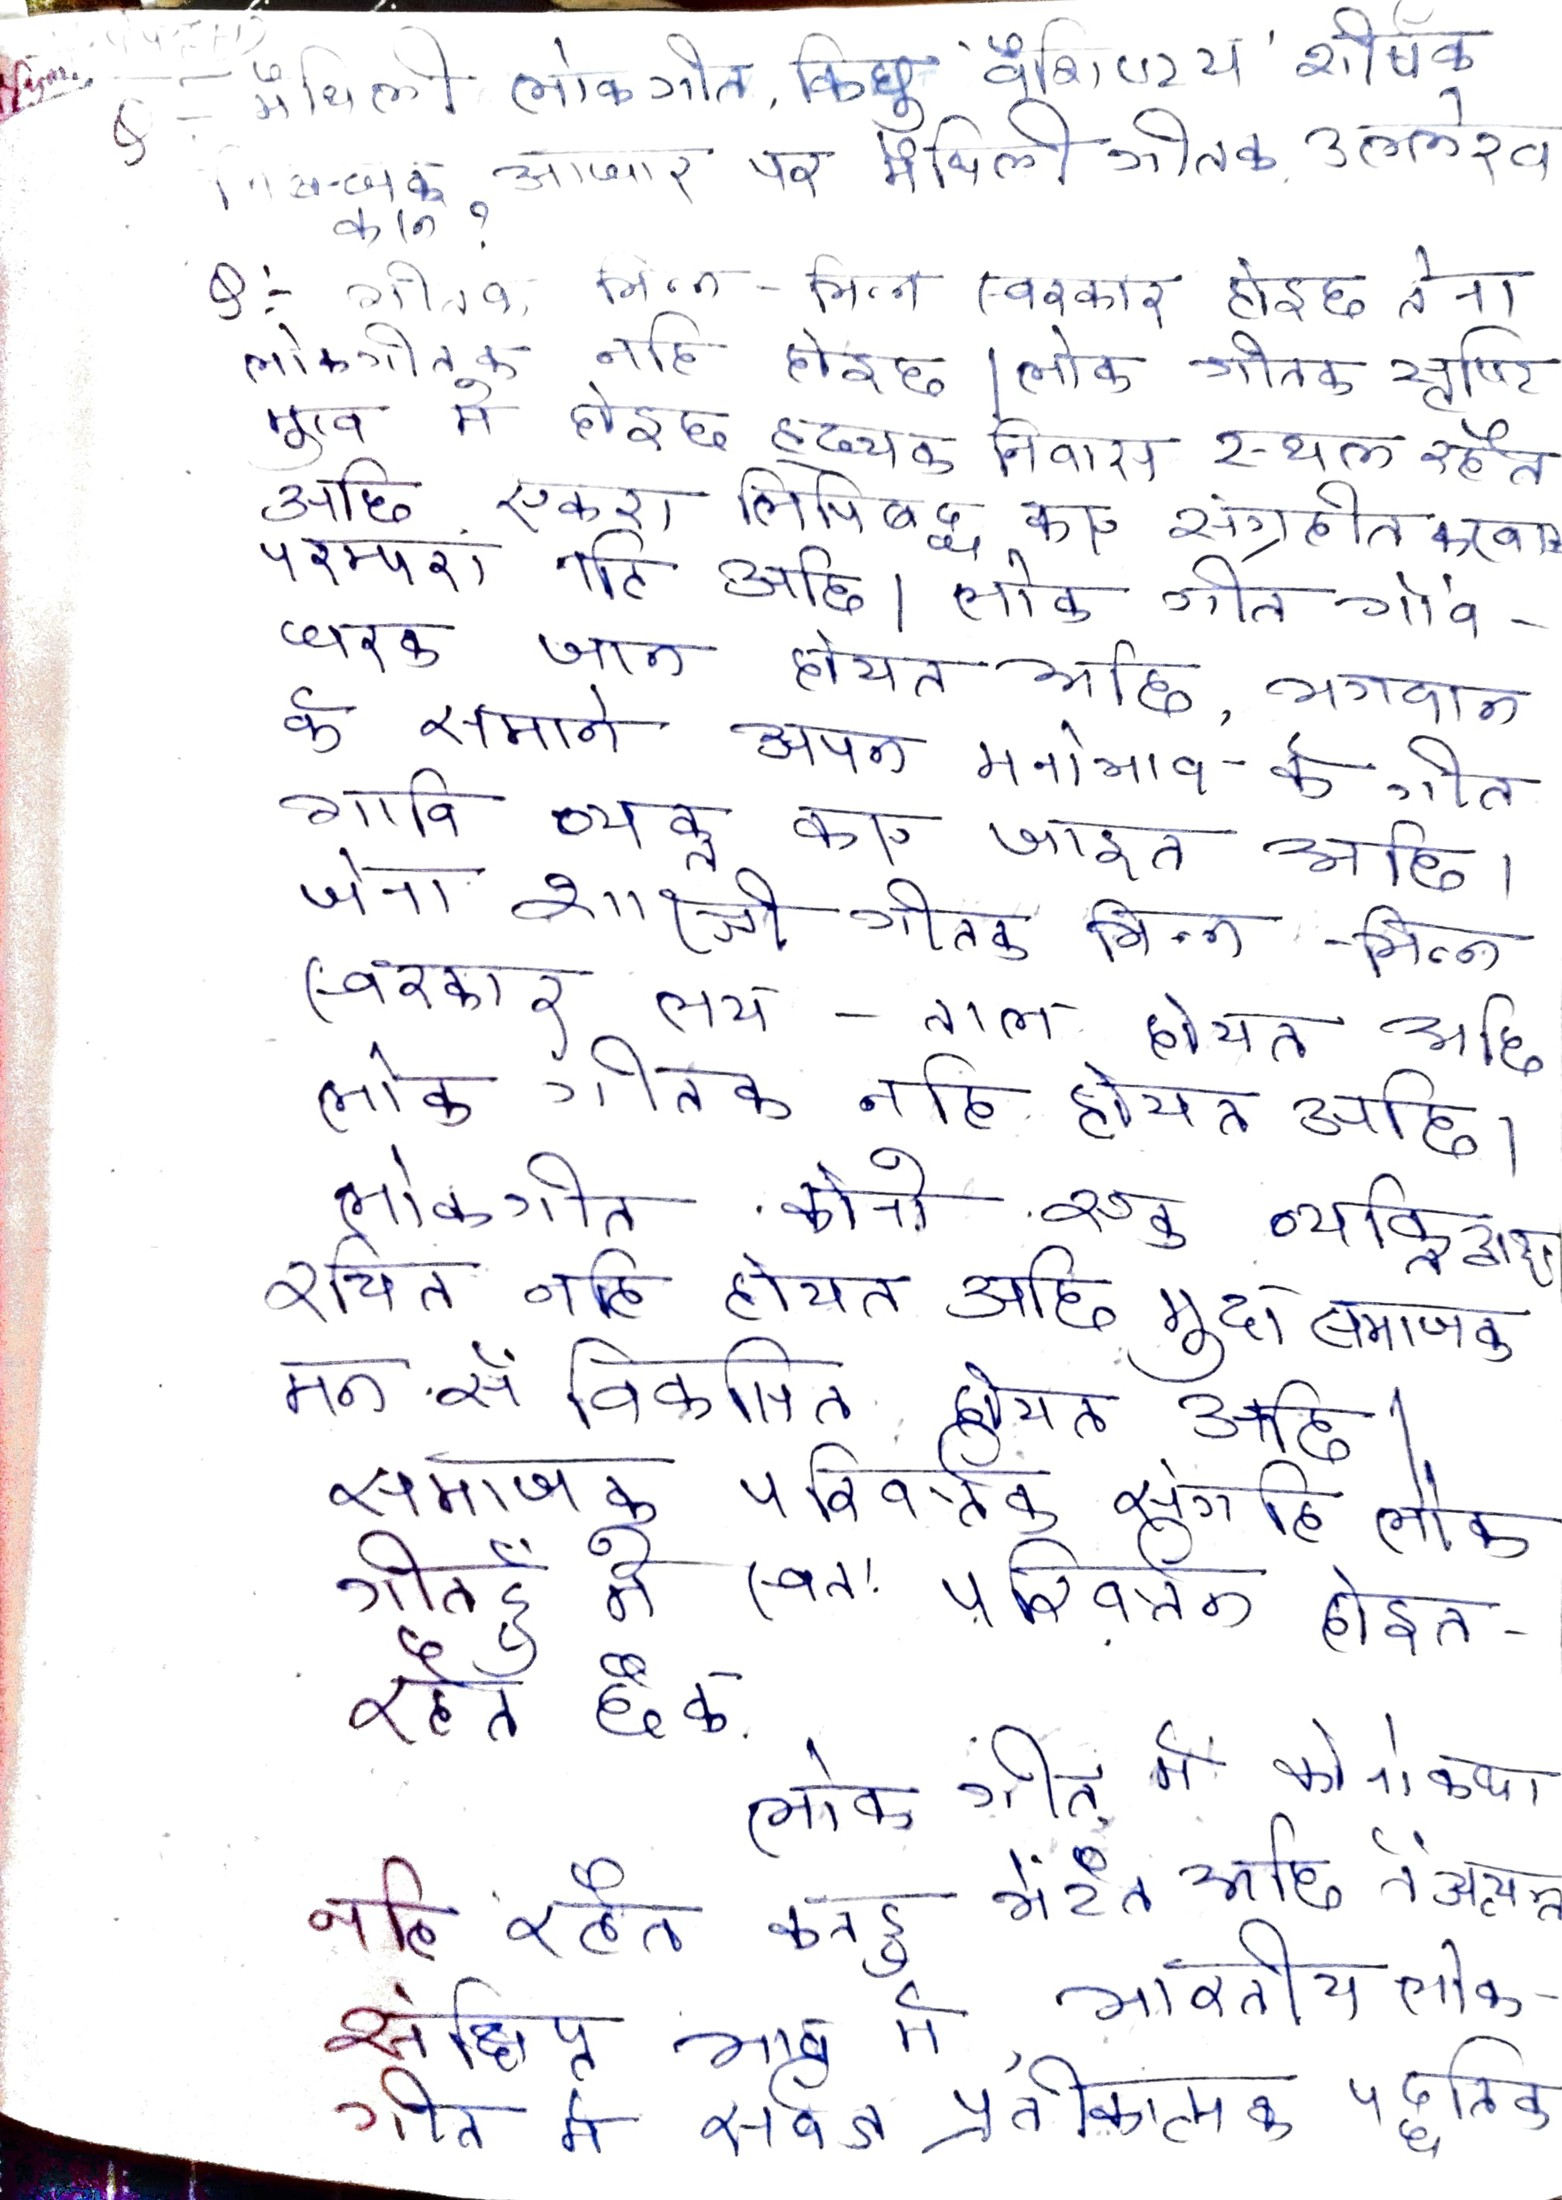 Q - मैथिली लोकगीत, किछु वैशिष्ट्य' शीर्षक
आधार पर मैथिली गीतक उल्लेख
करू ?
Q:- गीतक भिन्न - भिन्न स्वरकार होइछ तेना
लोकगीतक नहि होइछ | लोक गीतक सृष्टि
मुख मे होइछ हृदयक निवास स्थल रहैत
अछि एकरा लिपिबद्ध कए संग्रहीत करबाक
परम्परा नहि अछि | लोक गीत गाँव -
घरक जान होयत अछि, भगवान
के समाने अपन मनोभाव के गीत
गाबि व्यक्त कए जाइत अछि |
जेना शास्त्री गीतक भिन्न - भिन्न
स्वरकार लय - ताल होयत अछि
लोक गीतक नहि होयत अछि |
लोकगीत कोनो एक व्यक्ति द्वारा
रचित नहि होयत अछि मुदा समाजक
मन सँ विकसित होयत अछि |
समाजक परिवर्तक संगहि लोक
गीतहुँ मे स्वतः परिवर्तन होइत -
रहैत छैक.
लोक गीत मे कोनो कथा
नहि रहैत कतहु भेटैत अछि तँ अत्यन्त
संक्षिप्त भाव मे, भारतीय लोक-
गीत मे सर्वत्र प्रतीकात्मक पद्धतिक